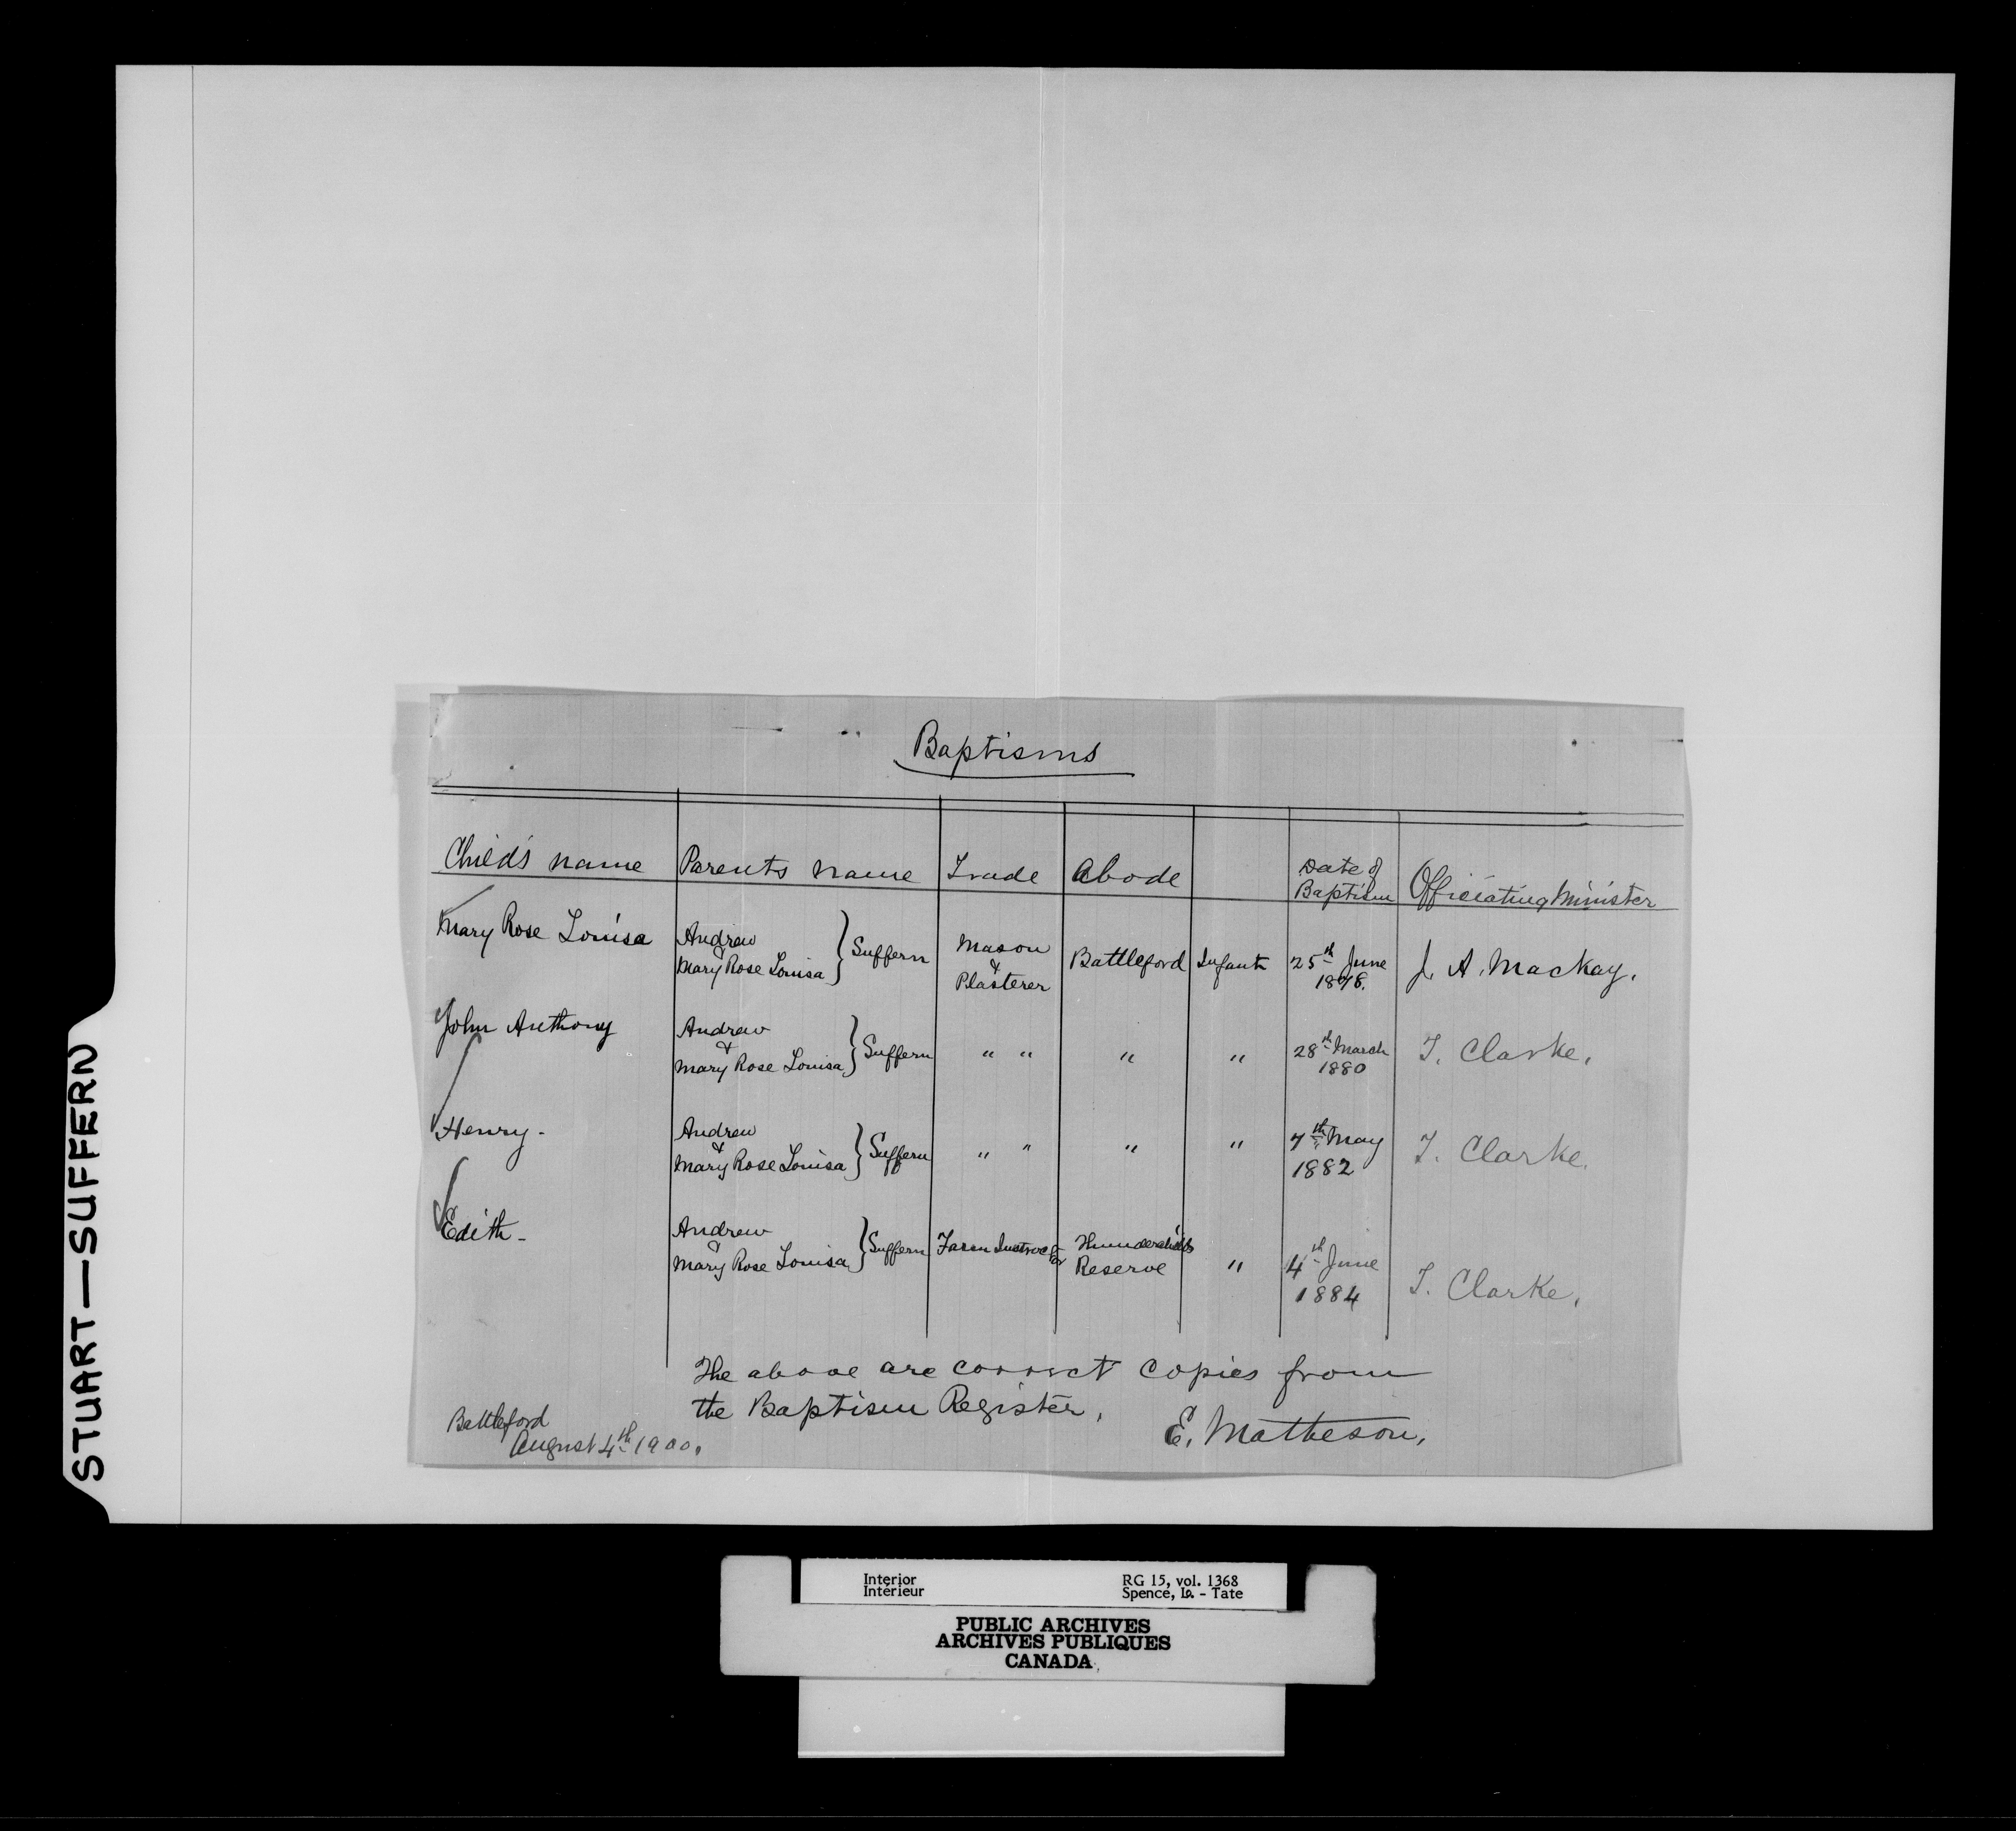 STUART—SUFFERN
Baptisms
Child's name Parents name Trade Abode Date of Baptism Officiating Minister
Mary Rose Louisa Andrew & Mary Rose Louisa } Suffern Mason & Plasterer Battleford Infant 25th June 1878. J. A. Mackay.
John Anthony Andrew & Mary Rose Louisa } Suffern " " " " 28th March 1880 T. Clarke.
Henry - Andrew & Mary Rose Louisa } Suffern " " " " 7th May 1882 T. Clarke.
Edith - Andrew & Mary Rose Louisa } Suffern Farm Instructor Thunderchild's Reserve " 4th June 1884 T. Clarke.
The above are correct copies from
the Baptism Register.
Battleford
August 4th 1900.
E. Matheson.
Interior RG 15, vol. 1368
Intérieur Spence, Lo. - Tate
PUBLIC ARCHIVES
ARCHIVES PUBLIQUES
CANADA